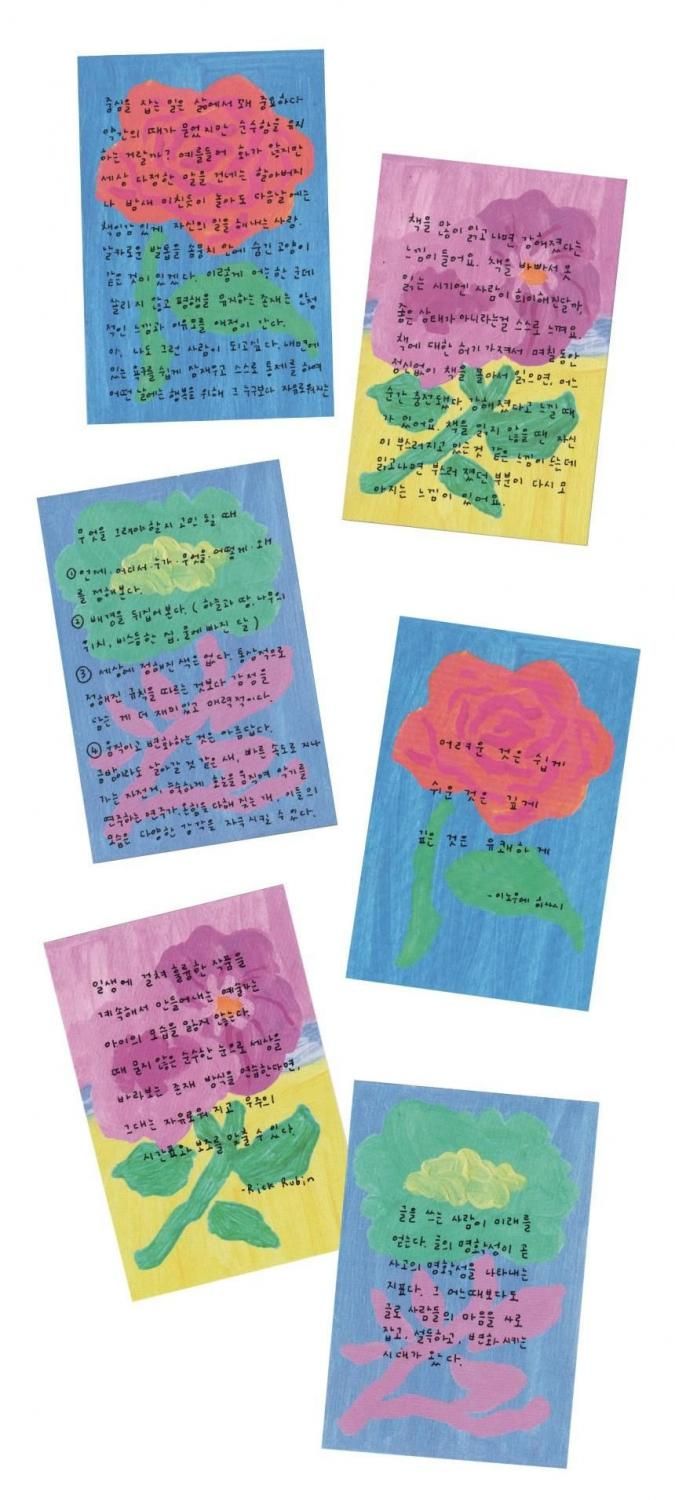 중심을 잡는 일은 삶에서 꽤 중요하다
약간의 때가 묻었지만 순수함을 유지
하는 거랄까? 예를들어 화가 났지만
세상 다정한 말을 건네는 할아버지
나 밤새 미친듯이 놀아도 다음날에는
책임감 있게 자신의 일을 해내는 사람.
날카로운 발톱을 솜뭉치 안에 숨긴 고양이
같은 것이 있겠다. 이렇게 어느 한 군데
쏠리지 않고 평행을 유지하는 존재는 안정
적인 느낌과 이유모를 애정이 간다.
아, 나도 그런 사람이 되고싶다. 내면에
있는 욕구를 쉽게 잠재우고 스스로 통제를 하며
어떤 날에는 행복을 위해 그 누구보다 자유로워지는
책을 많이 읽고나면 강해졌다는
느낌이들어요. 책을 바빠서 못
읽는 시기엔 사람이 희미해진달까,
좋은 상태가 아니라는걸 스스로 느껴요.
책에 대한 허기가져서 며칠동안
정신없이 책을 몰아서 읽으면, 어느
순간 충전됐다, 강해졌다고 느낄 때
가 있어요. 책을 읽지 않을 땐 자신
이 부스러지고 있는 것 같은 느낌이 드는데
읽고나면 부스러졌던 부분이 다시 모
아지는 느낌이 있어요.
무엇을 그려야할지 고민 될 때
① 언제·어디서·누가·무엇을·어떻게·왜
를 정해본다.
② 배경을 뒤집어본다. (하늘과 땅, 나무의
위치, 비스듬한 집, 물에 빠진 달)
③ 세상에 정해진 색은 없다. 통상적으로
정해진 규칙을 따르는 것보다 감정을
담는 게 더 재미있고 매력적이다.
④ 움직이고 변화하는 것은 아름답다.
금방이라도 날아갈 것 같은 새, 빠른 속도로 지나
가는 자전거, 능숙하게 활을 움직여 악기를
연주하는 연주가, 온힘을 다해 짖는 개, 이들의
모습은 다양한 감각을 자극시킬 수 있다.
어려운 것은 쉽게
쉬운 것은 깊게
깊은 것은 유쾌하게
-이노우에 히사시
일생에 걸쳐 훌륭한 작품을
계속해서 만들어내는 예술가는
아이의 모습을 잃지 않는다.
때 묻지 않은 순수한 눈으로 세상을
바라보는 존재 방식을 연습한다면,
그대는 자유로워 지고 우주의
시간표와 보조를 맞출 수 있다.
-Rick Rubin
글을 쓰는 사람이 미래를
얻는다. 글의 명확성이 곧
사고의 명확성을 나타내는
지표다. 그 어느때보다도
글로 사람들의 마음을 사로
잡고, 설득하고, 변화시키는
시대가 왔다.